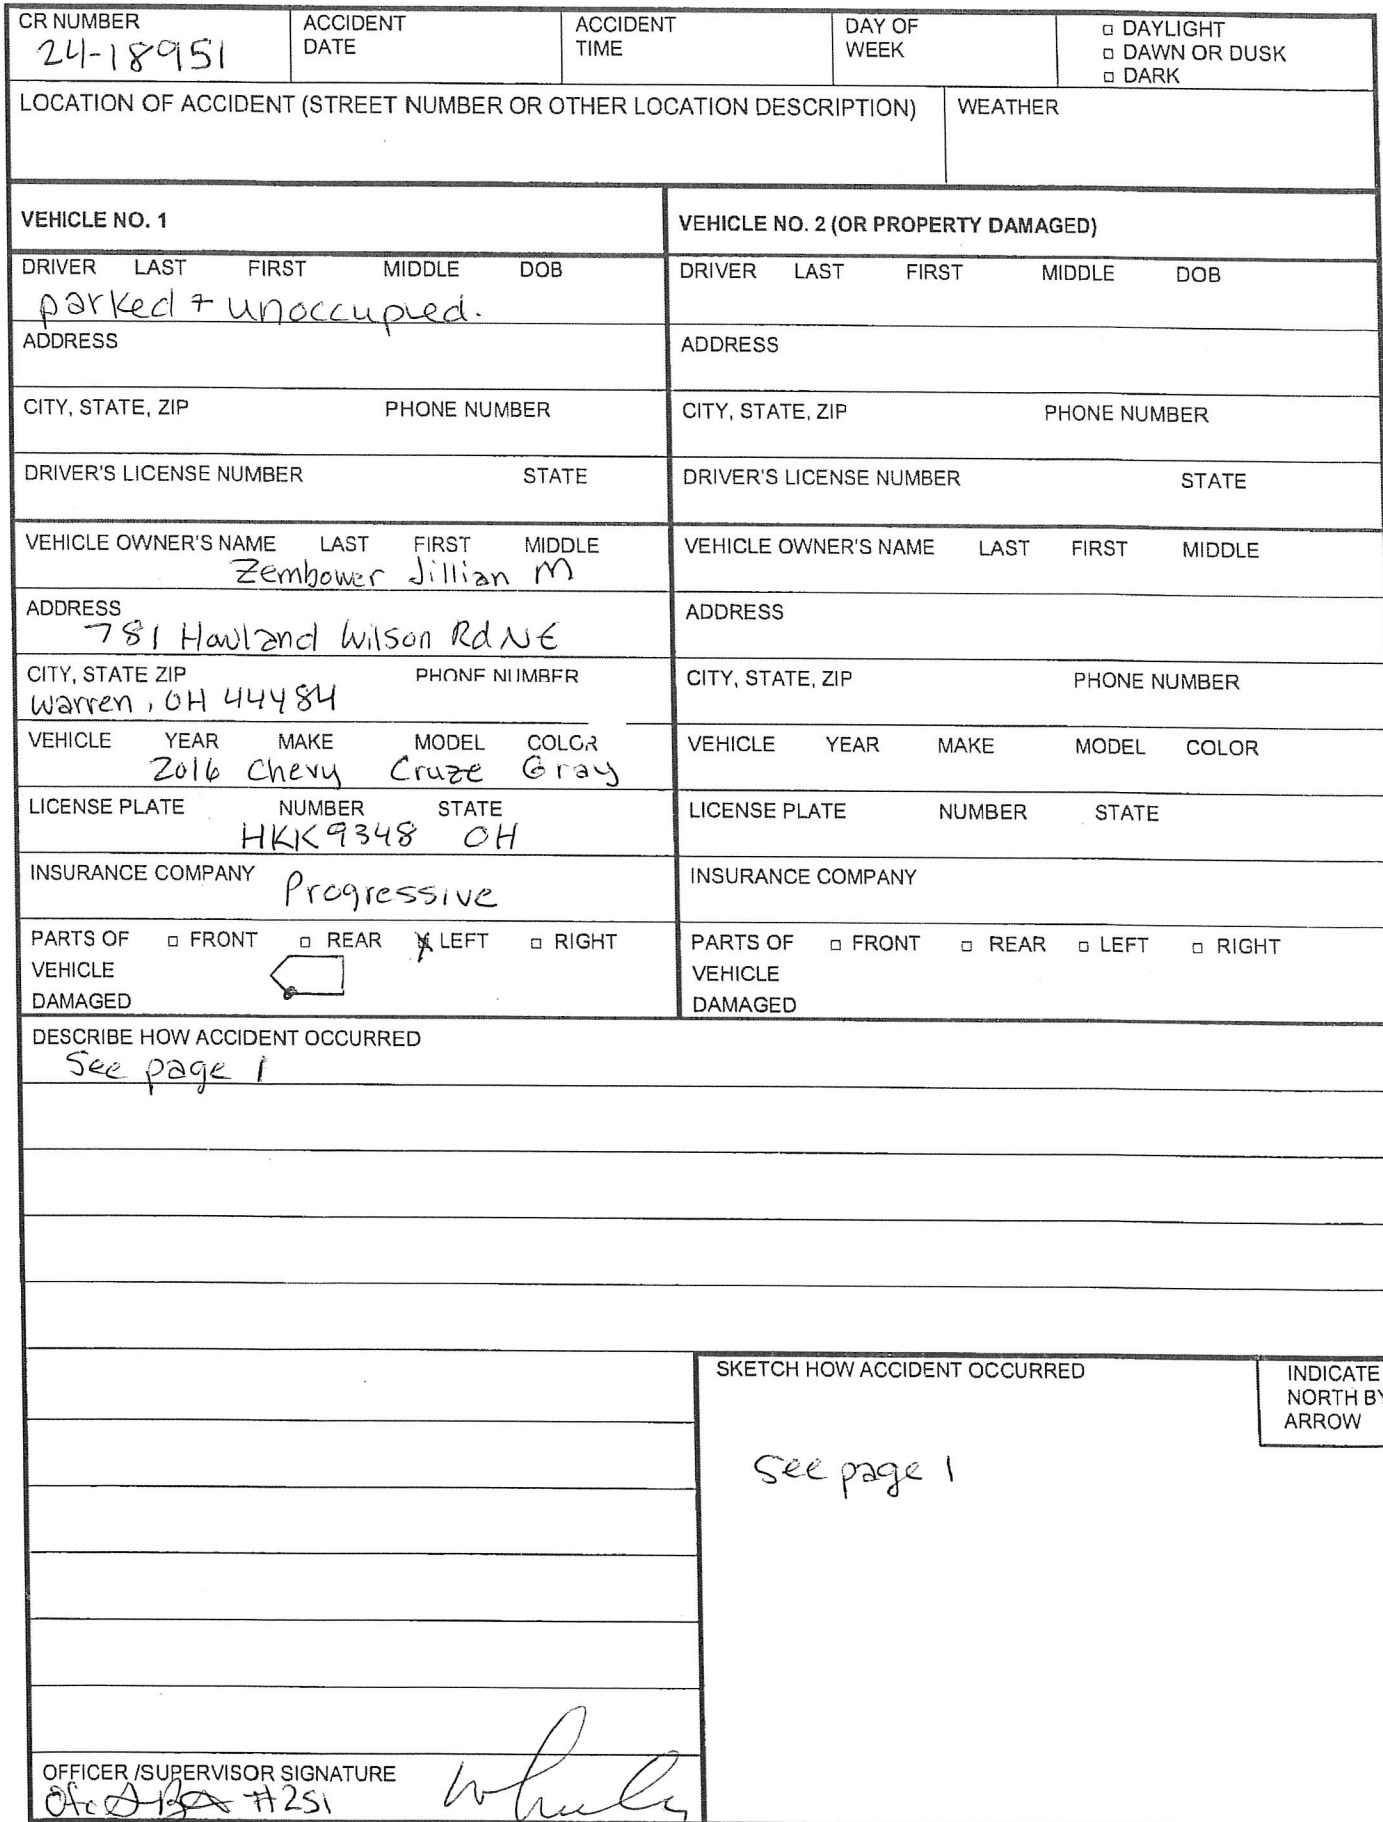 CR NUMBER ACCIDENT DATE ACCIDENT TIME DAY OF WEEK □ DAYLIGHT
□ DAWN OR DUSK
□ DARK
24-18951
LOCATION OF ACCIDENT (STREET NUMBER OR OTHER LOCATION DESCRIPTION) WEATHER
VEHICLE NO. 1
DRIVER LAST FIRST MIDDLE DOB
parked + unoccupied.
ADDRESS
CITY, STATE, ZIP PHONE NUMBER
DRIVER'S LICENSE NUMBER STATE
VEHICLE OWNER'S NAME LAST FIRST MIDDLE
Zembower Jillian M
ADDRESS
781 Howland Wilson Rd NE
CITY, STATE ZIP PHONE NUMBER
Warren, OH 44484
VEHICLE YEAR MAKE MODEL COLOR
2016 Chevy Cruze Gray
LICENSE PLATE NUMBER STATE
HKK9348 OH
INSURANCE COMPANY Progressive
PARTS OF □ FRONT □ REAR X LEFT □ RIGHT
VEHICLE
DAMAGED
VEHICLE NO. 2 (OR PROPERTY DAMAGED)
DRIVER LAST FIRST MIDDLE DOB
ADDRESS
CITY, STATE, ZIP PHONE NUMBER
DRIVER'S LICENSE NUMBER STATE
VEHICLE OWNER'S NAME LAST FIRST MIDDLE
ADDRESS
CITY, STATE, ZIP PHONE NUMBER
VEHICLE YEAR MAKE MODEL COLOR
LICENSE PLATE NUMBER STATE
INSURANCE COMPANY
PARTS OF □ FRONT □ REAR □ LEFT □ RIGHT
VEHICLE
DAMAGED
DESCRIBE HOW ACCIDENT OCCURRED
See page 1
SKETCH HOW ACCIDENT OCCURRED
INDICATE
NORTH BY
ARROW
See page 1
OFFICER /SUPERVISOR SIGNATURE
Ofc #251